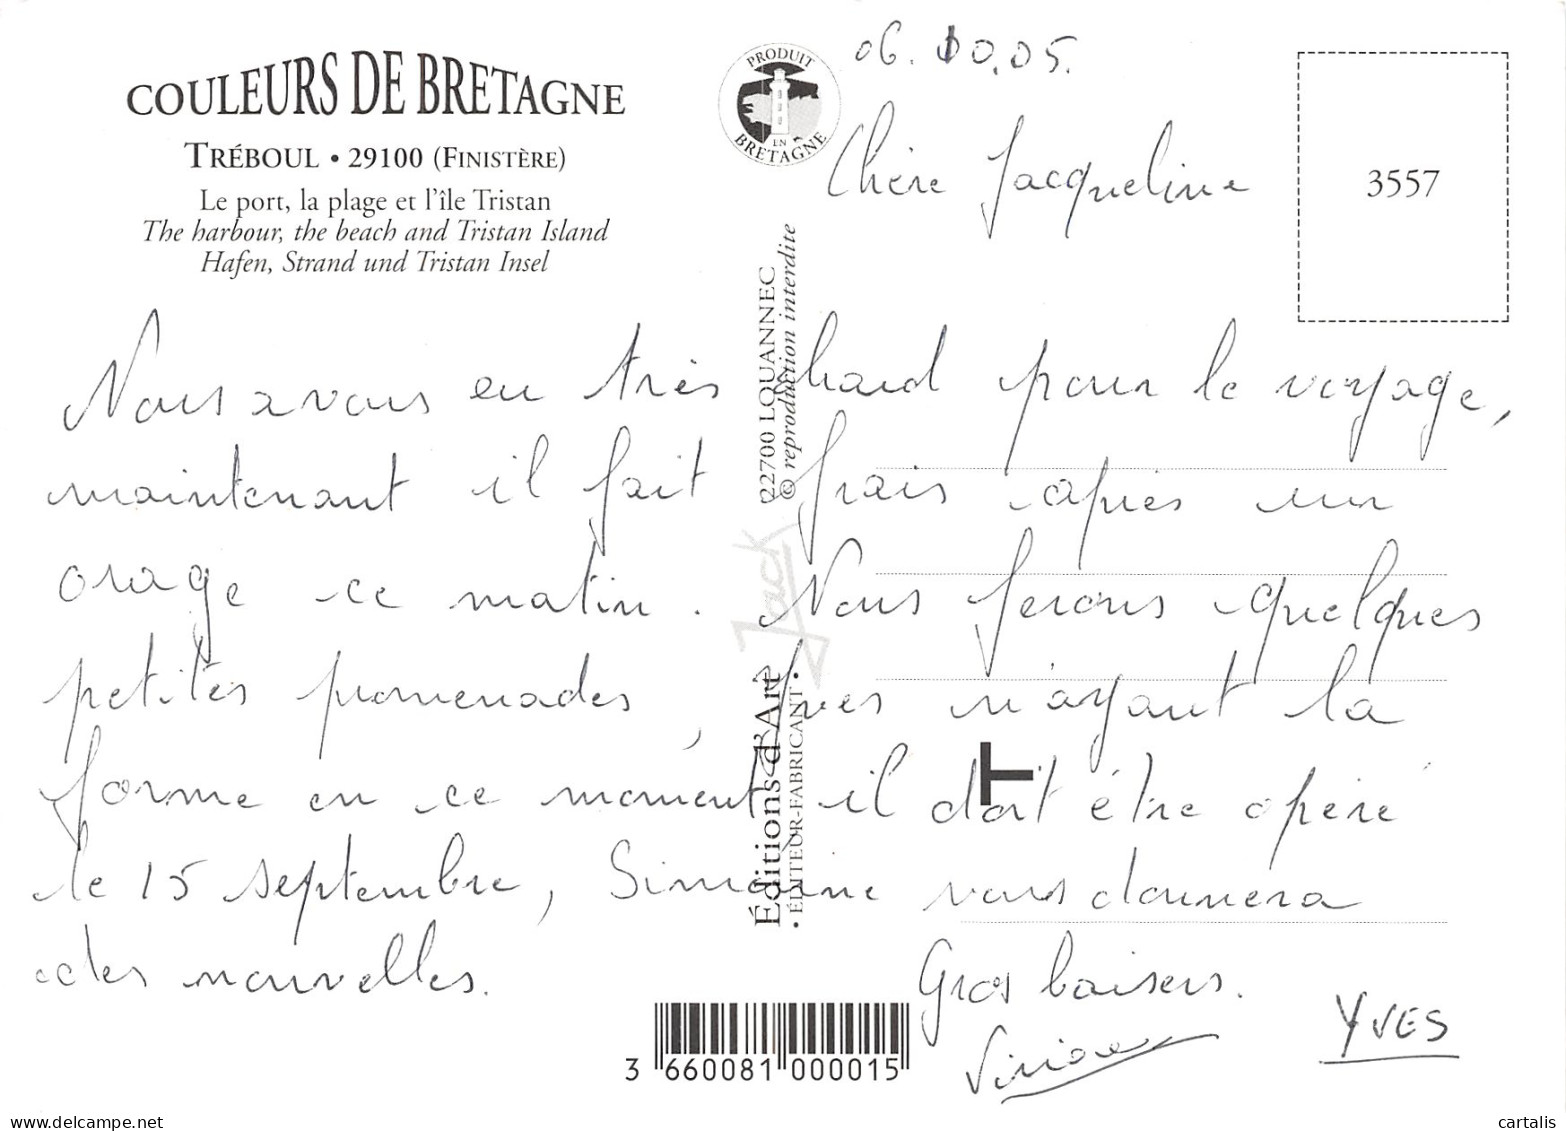 COULEURS DE BRETAGNE
TRÉBOUL • 29100 (FINISTÈRE)
Le port, la plage et l'île Tristan
The harbour, the beach and Tristan Island
Hafen, Strand und Tristan Insel
PRODUIT
EN
BRETAGNE
06. 05.
Chère Jacqueline
3557
Nous avons eu très chaud pour le voyage,
maintenant il fait frais après un
orage ce matin. Nous ferons quelques
petites promenades, Yves n'ayant la
forme en ce moment il doit être opéré
le 15 septembre, Simone vous donnera
des nouvelles.
Gros baisers.
YVES
Éditions d'Art Jack
• ÉDITEUR-FABRICANT •
22700 LOUANNEC
© reproduction interdite
T
3 660081 000015
cartalis
www.delcampe.net